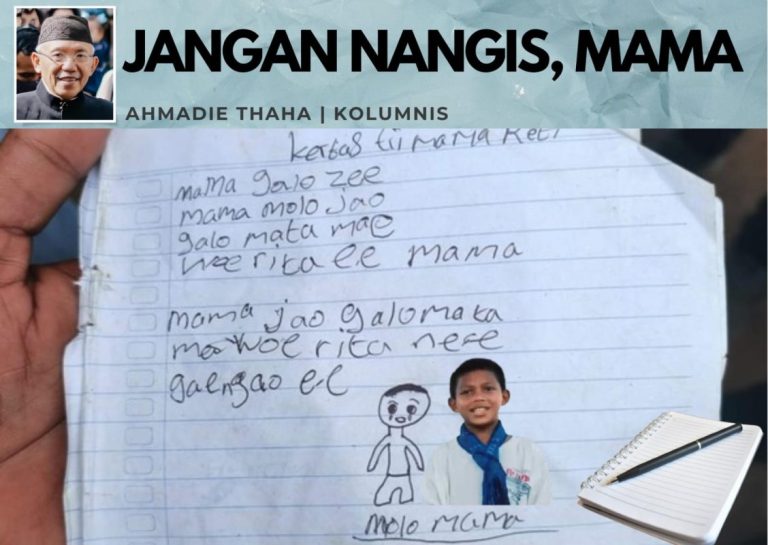 JANGAN NANGIS, MAMA
AHMADIE THAHA | KOLUMNIS
kertas tii mama Reti
mama galo zee
mama molo jao
galo mata mae
woe rita ee mama
mama jao galo mata
mae woe rita ne e
gaengao ee
molo mama